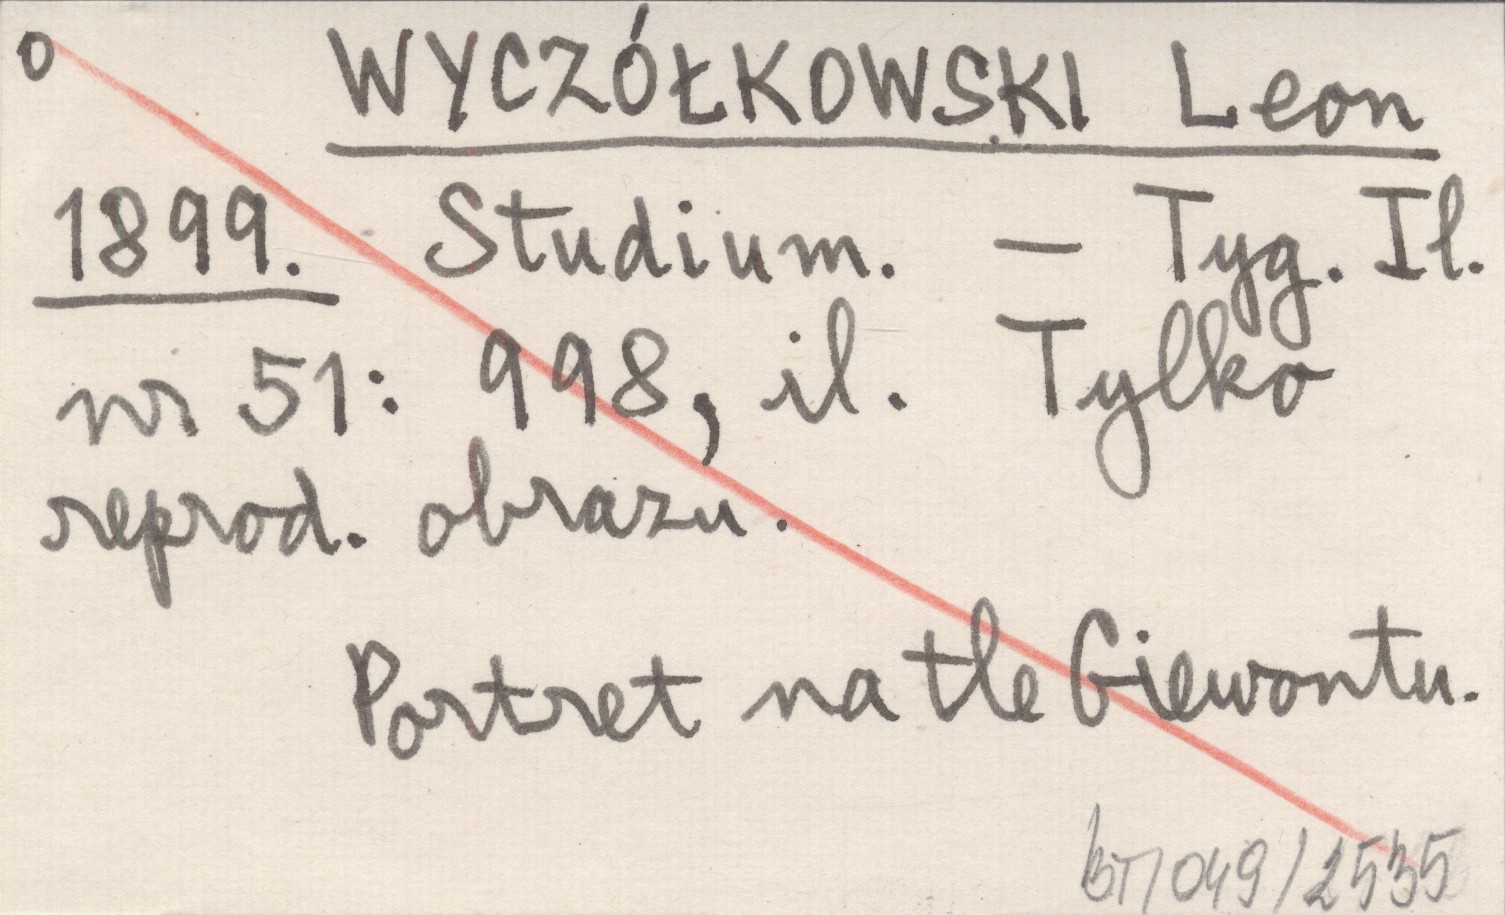 o WYCZÓŁKOWSKI Leon
1899. Studium. — Tyg. Il.
nr 51: 998, il. Tylko
reprod. obrazu.
Portret na tle Giewontu.
BT/049/2535